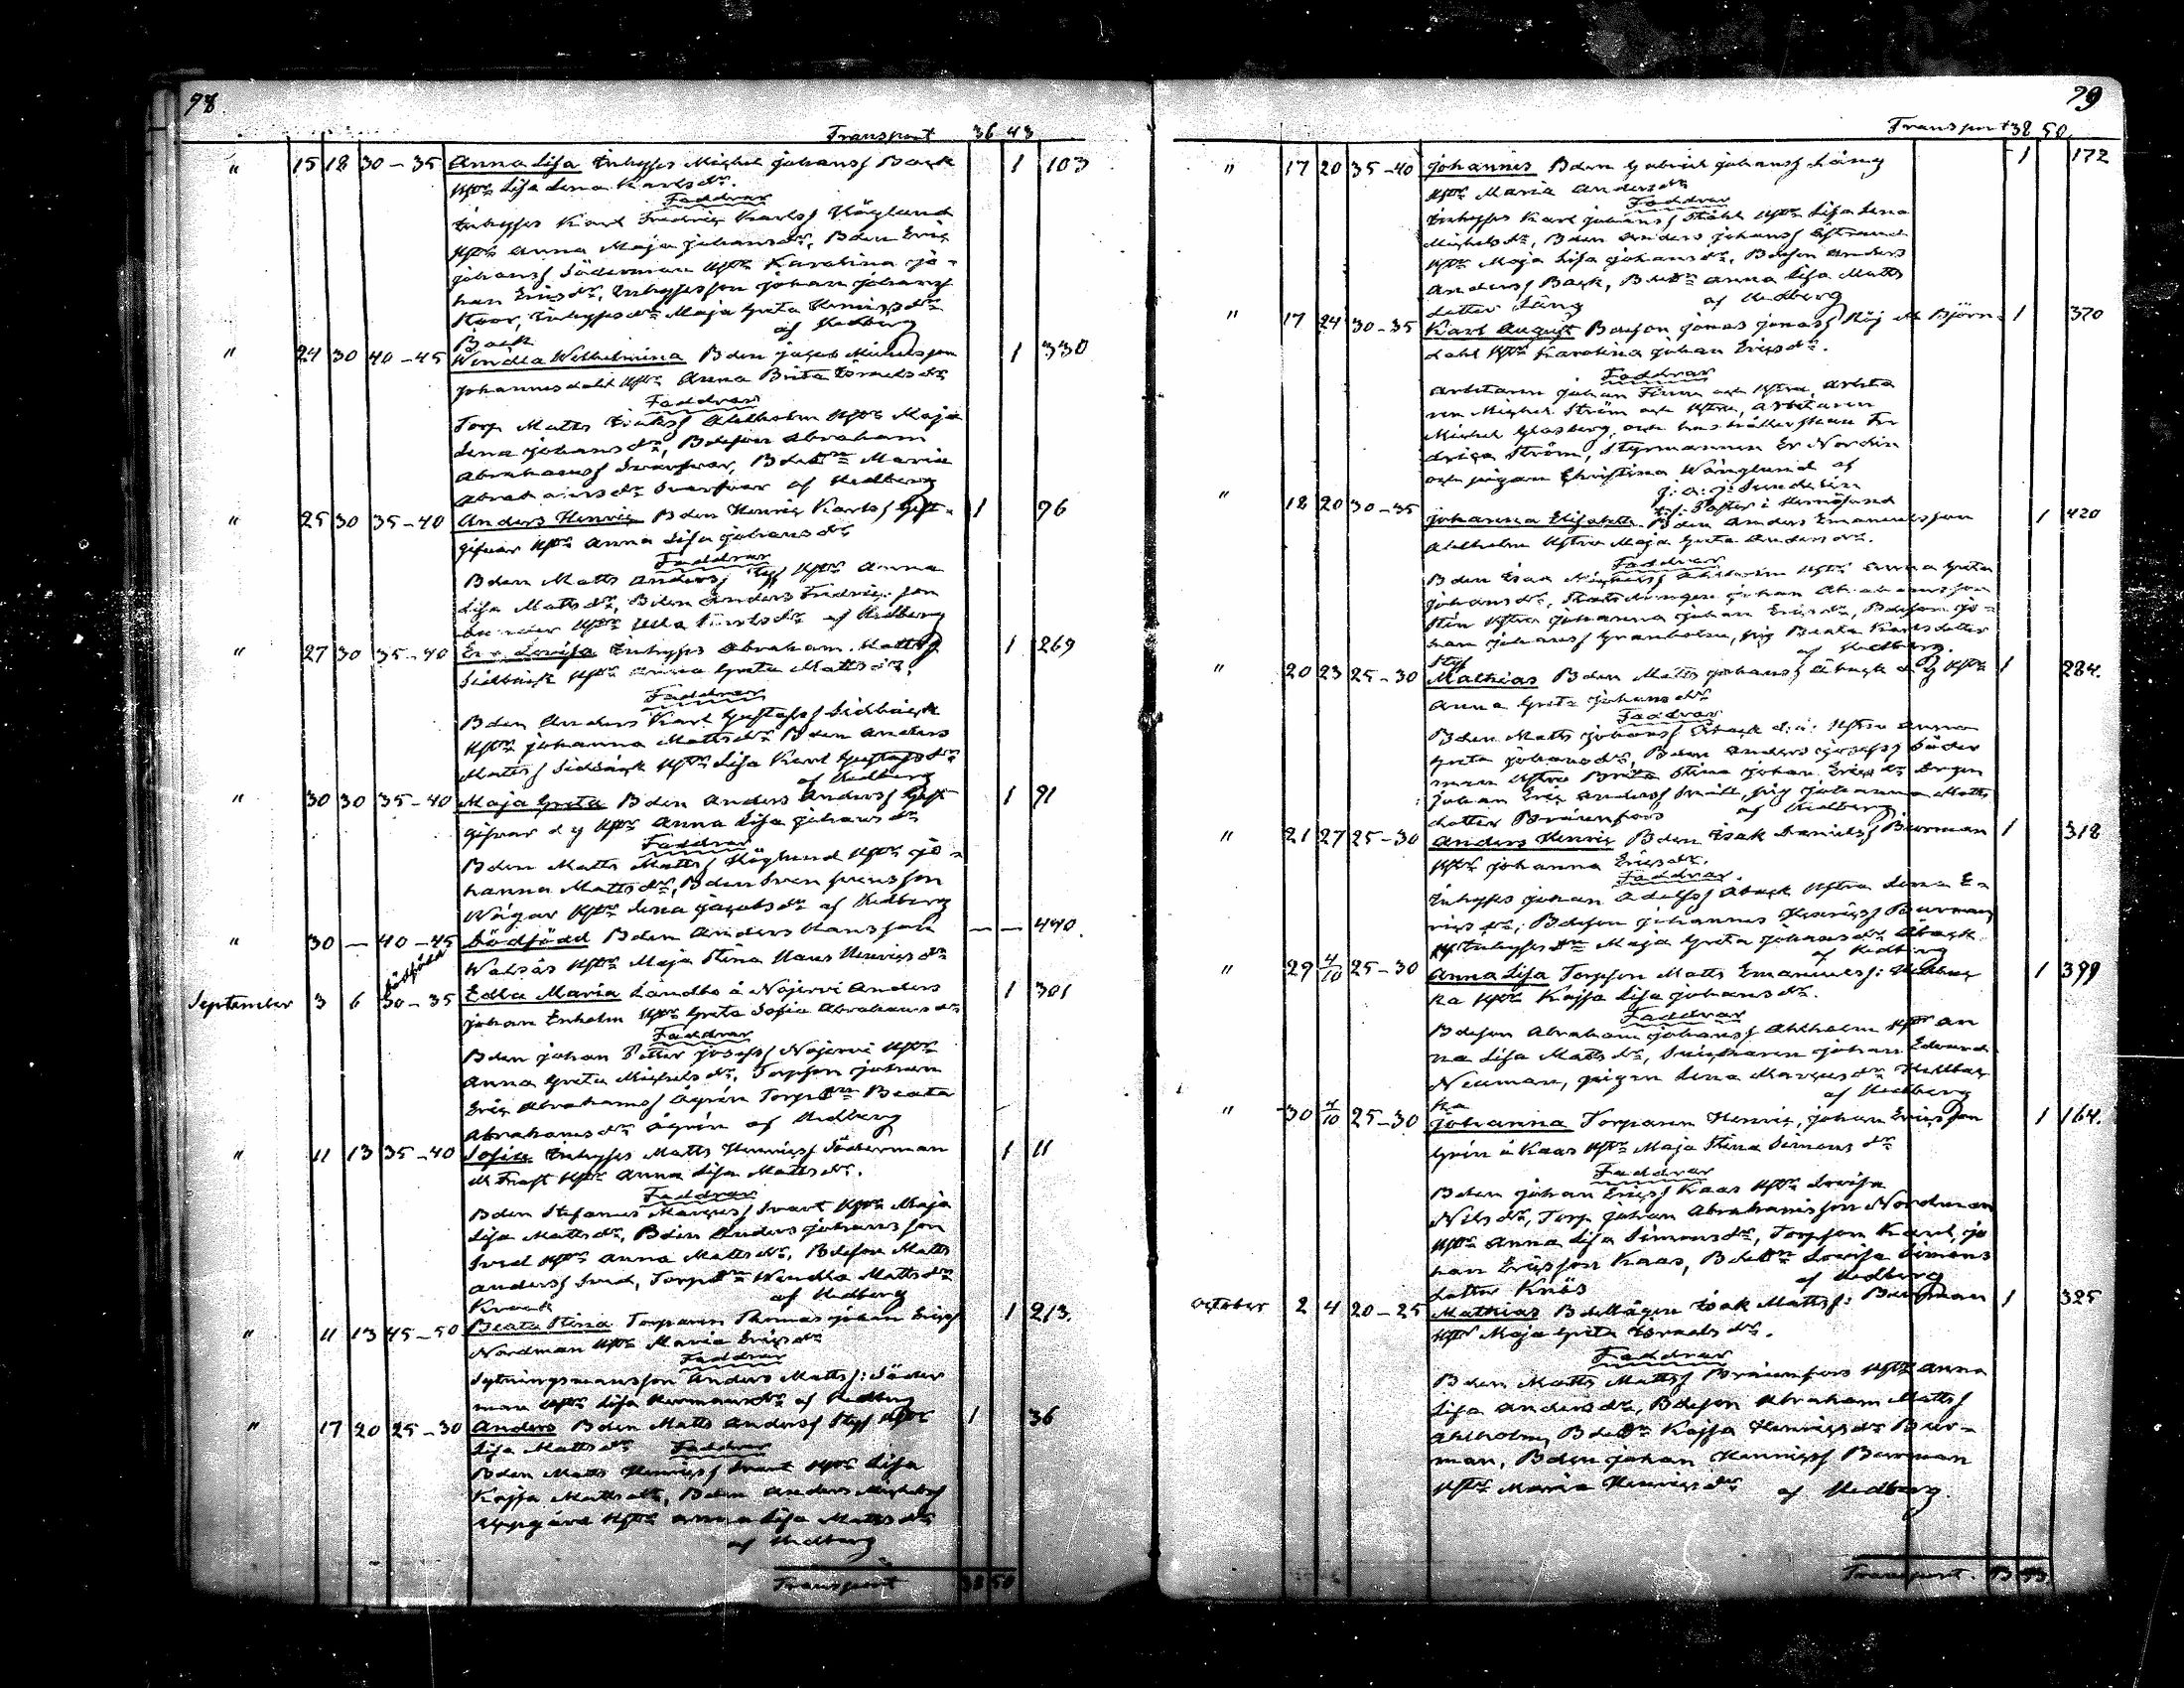 98
Transport 36 43
" 15 18 30-35 Anna Lisa Inhyses Michel Johanss Back 1 103
Hstr Lisa Lena Karlsdr.
Faddrar
Inhyses Karl Fredric Karlss Höglund
Hstr Anna Maja Johansdr, Bden Eric
Johanss Söderman Hstr Karolina Jo-
han Ericsdr, Inhysesson Johan Johanss
Stoor, Inhysesdr Maja Greta Henricsdr
Back af Hedberg
" 24 30 40-45 Wendla Wilhelmina Bden Jacob Michelsson 1 330
Johannesdahl Hstr Anna Brita Israelsdr
Faddrar
Torp Matts Isaks Ahlholm Hstr Maja
Lena Johansdr, Bdeson Abraham
Abrahamss Svarfvar, Bdedr Maria
Abrahamsdr Svarfvar af Hedberg
" 25 30 35-40 Anders Henric Bden Henric Karlss Gäst- 1 96
gifvar Hstr Anna Lisa Johansdr
Faddrar
Bden Matts Anderss Styf Hstr Anna
Lisa Mattsdr, Bden Anders Fredricsson
Hstr Ulla af Hedberg
" 27 30 35-40 Eva Lovisa Inhyses Abraham Mattss 1 269
Sidbäck Hstr Anna Greta Mattsdr.
Faddrar
Bden Anders Karl Gustafss Sidbäck
Hstr Johanna Mattsdr Bden Anders
Mattss Sidbäck Hstr Lisa Karl Gustafsdr
af Hedberg
" 30 30 35-40 Maja Greta Bden Anders Anderss Gäst 1 91
gifvar d y Hstr Anna Lisa Johansdr
Faddrar
Bden Matts Mattss Höglund Hstr Jo-
hanna Mattsdr, Bden Sven Svensson
Wågar Hstr Lena Jacobsdr af Hedberg
" 30 — 40-45 Dödfödd Bden Anders Hansson — — 440.
Walsås Hstr Maja Stina Hans Henricsdr
dödfödd
September 3 6 30-35 Edla Maria Landbo å Näjervi Anders 1 301
Johan Enholm Hstr Greta Sofia Abrahamsdr
Faddrar
Bden Johan Petter Josefss Näjervi Hstr
Anna Greta Michelsdr, Torpson Johan
Eric Abrahamss Ågrén Torpdr Beata
Abrahamsdr Ågrén af Hedberg
" 11 13 35-40 Sofia Inhyses Matts Henricss Söderman 1 11
Hstr Anna Lisa Mattsdr.
Faddrar
Bden Stefanus Marcuss Svart Hstr Maja
Lisa Mattsdr, Bden Anders Johansson
Sved Hstr Anna Mattsdr, Bdeson Matts
Anderss Sved, Torpdr Wendla Mattsdr
Knack af Hedberg
" 11 13 45-50 Beata Stina Torparen Thomas Johan Ericss 1 213.
Nordman Hstr Maria Ericsdr
Faddrar
Sytningsmansson Anders Mattss: Söder
man Hstr Lisa Hermansdr af Hedberg
" 17 20 25-30 Anders Bden Matts Anderss Styf Hstr 1 36
Lisa Mattsdr Faddrar
Bden Matts Henricss Svart Hstr Lisa
Kajsa Mattsdr, Bden Anders Michelss
Uppgård Hstr Anna Lisa Mattsdr
af Hedberg
Transport 38 50
99
Transport 38 50.
" 17 20 35-40 Johannes Bden Gabriel Johanss Lång 1 172
Hstr Maria Andersdr
Faddrar
Inhyses Karl Johanss Ståhl Hstr Lisa Lena
Michelsdr, Bden Anders Johanss Östrand
Hstr Maja Lisa Johansdr, Bdeson Anders
Anderss Back, Bdedr Anna Lisa Matts
dotter Lång af Hedberg
" 17 24 30-35 Karl August Bdeson Jonas Jonass Höj Björn- 1 370
dahl Hstr Karolina Johan Ericsdr.
Faddrar
Arbetaren Johan Finne och Hstru, Arbeta
ren Michel Ström och Hstru, Arbetaren
Michel Glasberg, och hushållerskan Fre
drica Ström, Styrmannen Er Nordin
och pigan Christina Wänglund af
J: A: J: Sundelin
Pastor i Hernösand
" 18 20 30-35 Johanna Elisabeth Bden Anders Emanuelsson 1 420
Ahlholm Hstru Maja Greta Andersdr.
Faddrar
Bden Isac Michelss Ahlholm Hstr Anna Greta
Johansdr, Johan Abrahamsson
Hstru Johanna Johan Ericsdr, Bdeson Jo-
han Johanss Granholm, pig Beata Karlsdotter
Styf af Hedberg.
" 20 23 25-30 Mathias Bden Matts Johanss Åback d y Hstr 1 284.
Anna Greta Johansdr
Faddrar
Bden Matts Johanss Åback d: ä: Hstru Anna
Greta Johansdr, Bden Anders Josefss Söder
man Hstru Brita Stina Johan Ericsdr Drgn
Johan Eric Anderss Smitt, pig Johanna Matts
dotter Brännfors af Hedberg
" 21 27 25-30 Anders Henric Bden Isak Danielss Buurman 1 318
Hstr Johanna Ericsdr.
Faddrar.
Inhyses Johan Adolfss Aback Hstru Lena E-
ricsdr, Bdeson Johannes Henricss Buurman
Inhysesdr Maja Greta Johansdr Aback
af Hedberg
" 29 4/10 25-30 Anna Lisa Torpson Matts Emanuelss: Hellbac 1 399
ka Hstr Kajsa Lisa Johansdr.
Faddrar
Bdeson Abraham Johanss Ahlholm Hstr An
na Lisa Mattsdr, Johan Edvard
Neuman, pigan Lena Marcusdr Hellbac
ka af Hedberg
" 30 4/10 25-30 Johanna Torparen Henric, Johan Ericsson 1 164.
Grén å Kaas Hstr Maja Stina Simonsdr
Faddrar
Bden Johan Ericss Kaas Hstr Lovisa
Nilsdr, Torp Johan Abrahamsson Nordman
Hstr Anna Lisa Simonsdr, Torpson Karl, Jo
han Ericsson Kaas, Bdedr Lovisa Simons
dotter Knös af Hedberg
October 2 4 20-25 Mathias Bdemågen Isak Mattss: Bergman 1 325
Hstr Maja Greta Israelsdr.
Faddrar
Bden Matts Mattss Brännfors Hstr Anna
Lisa Andersdr, Bdeson Abraham Mattss
Ahlholm, Bdedr Kajsa Henricsdr Buur-
man, Bden Johan Henricss Buurman
Hstr Maria Henricsdr af Hedberg.
Transport. 43 53.